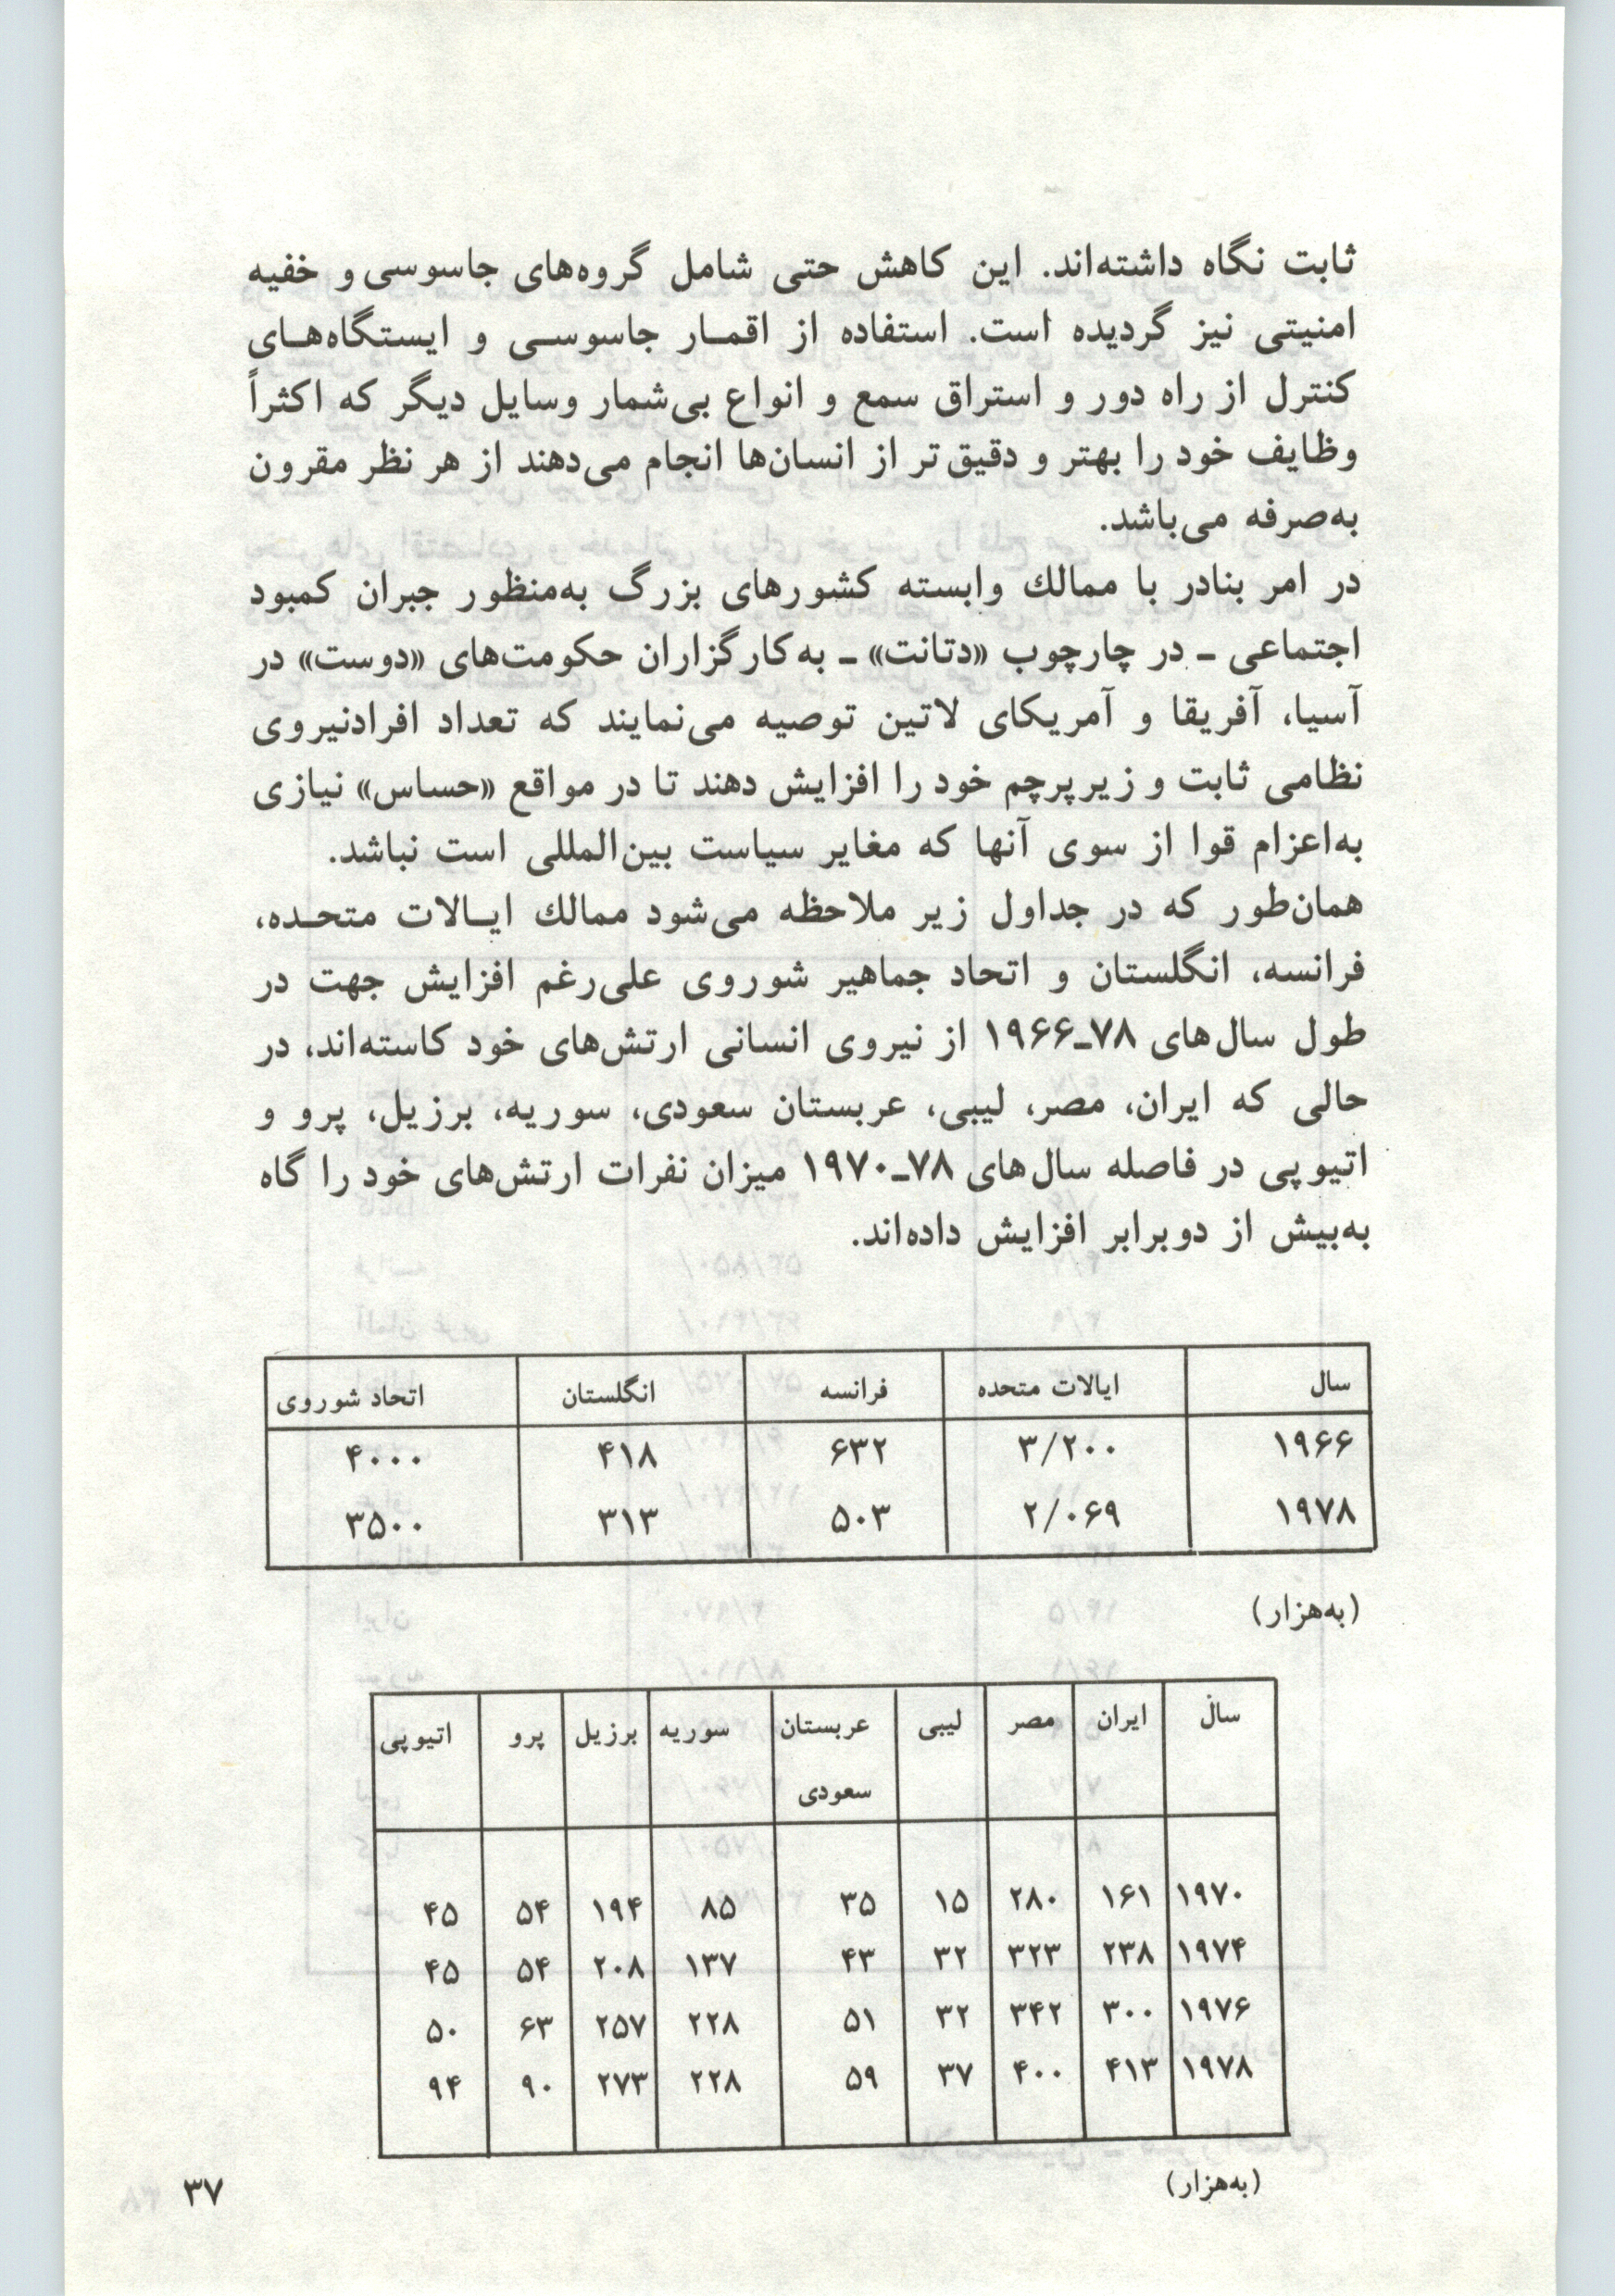 ثابت نگاه داشته‌اند. این کاهش حتی شامل گروه‌های جاسوسی و خفیه
امنیتی نیز گردیده است. استفاده از اقمـار جاسوسـی و ایستگاه‌هـای
کنترل از راه دور و استراق سمع و انواع بی‌شمار وسایل دیگر که اکثراً
وظایف خود را بهتر و دقیق‌تر از انسان‌ها انجام می‌دهند از هر نظر مقرون
به‌صرفه می‌باشد.
در امر بنادر با ممالك وابسته کشورهای بزرگ به‌منظور جبران کمبود
اجتماعی ـ در چارچوب «دتانت» ـ به‌کارگزاران حکومت‌های «دوست» در
آسیا، آفریقا و آمریکای لاتین توصیه می‌نمایند که تعداد افرادنیروی
نظامی ثابت و زیرپرچم خود را افزایش دهند تا در مواقع «حساس» نیازی
به‌اعزام قوا از سوی آنها که مغایر سیاست بین‌المللی است نباشد.
همان‌طور که در جداول زیر ملاحظه می‌شود ممالك ایـالات متحـده،
فرانسه، انگلستان و اتحاد جماهیر شوروی علی‌رغم افزایش جهت در
طول سال‌های ۷۸ـ۱۹۶۶ از نیروی انسانی ارتش‌های خود کاسته‌اند، در
حالی که ایران، مصر، لیبی، عربستان سعودی، سوریه، برزیل، پرو و
اتیوپی در فاصله سال‌های ۷۸ـ۱۹۷۰ میزان نفرات ارتش‌های خود را گاه
به‌بیش از دوبرابر افزایش داده‌اند.
سال ایالات متحده فرانسه انگلستان اتحاد شوروی
۱۹۶۶ ۳/۲۰۰ ۶۳۲ ۴۱۸ ۴۰۰۰
۱۹۷۸ ۲/۰۶۹ ۵۰۳ ۳۱۳ ۳۵۰۰
(به‌هزار)
سال ایران مصر لیبی عربستان سوریه برزیل پرو اتیوپی
سعودی
۱۹۷۰ ۱۶۱ ۲۸۰ ۱۵ ۳۵ ۸۵ ۱۹۴ ۵۴ ۴۵
۱۹۷۴ ۲۳۸ ۳۲۳ ۳۲ ۴۳ ۱۳۷ ۲۰۸ ۵۴ ۴۵
۱۹۷۶ ۳۰۰ ۳۴۲ ۳۲ ۵۱ ۲۲۸ ۲۵۷ ۶۳ ۵۰
۱۹۷۸ ۴۱۳ ۴۰۰ ۳۷ ۵۹ ۲۲۸ ۲۷۳ ۹۰ ۹۴
(به‌هزار)
۳۷